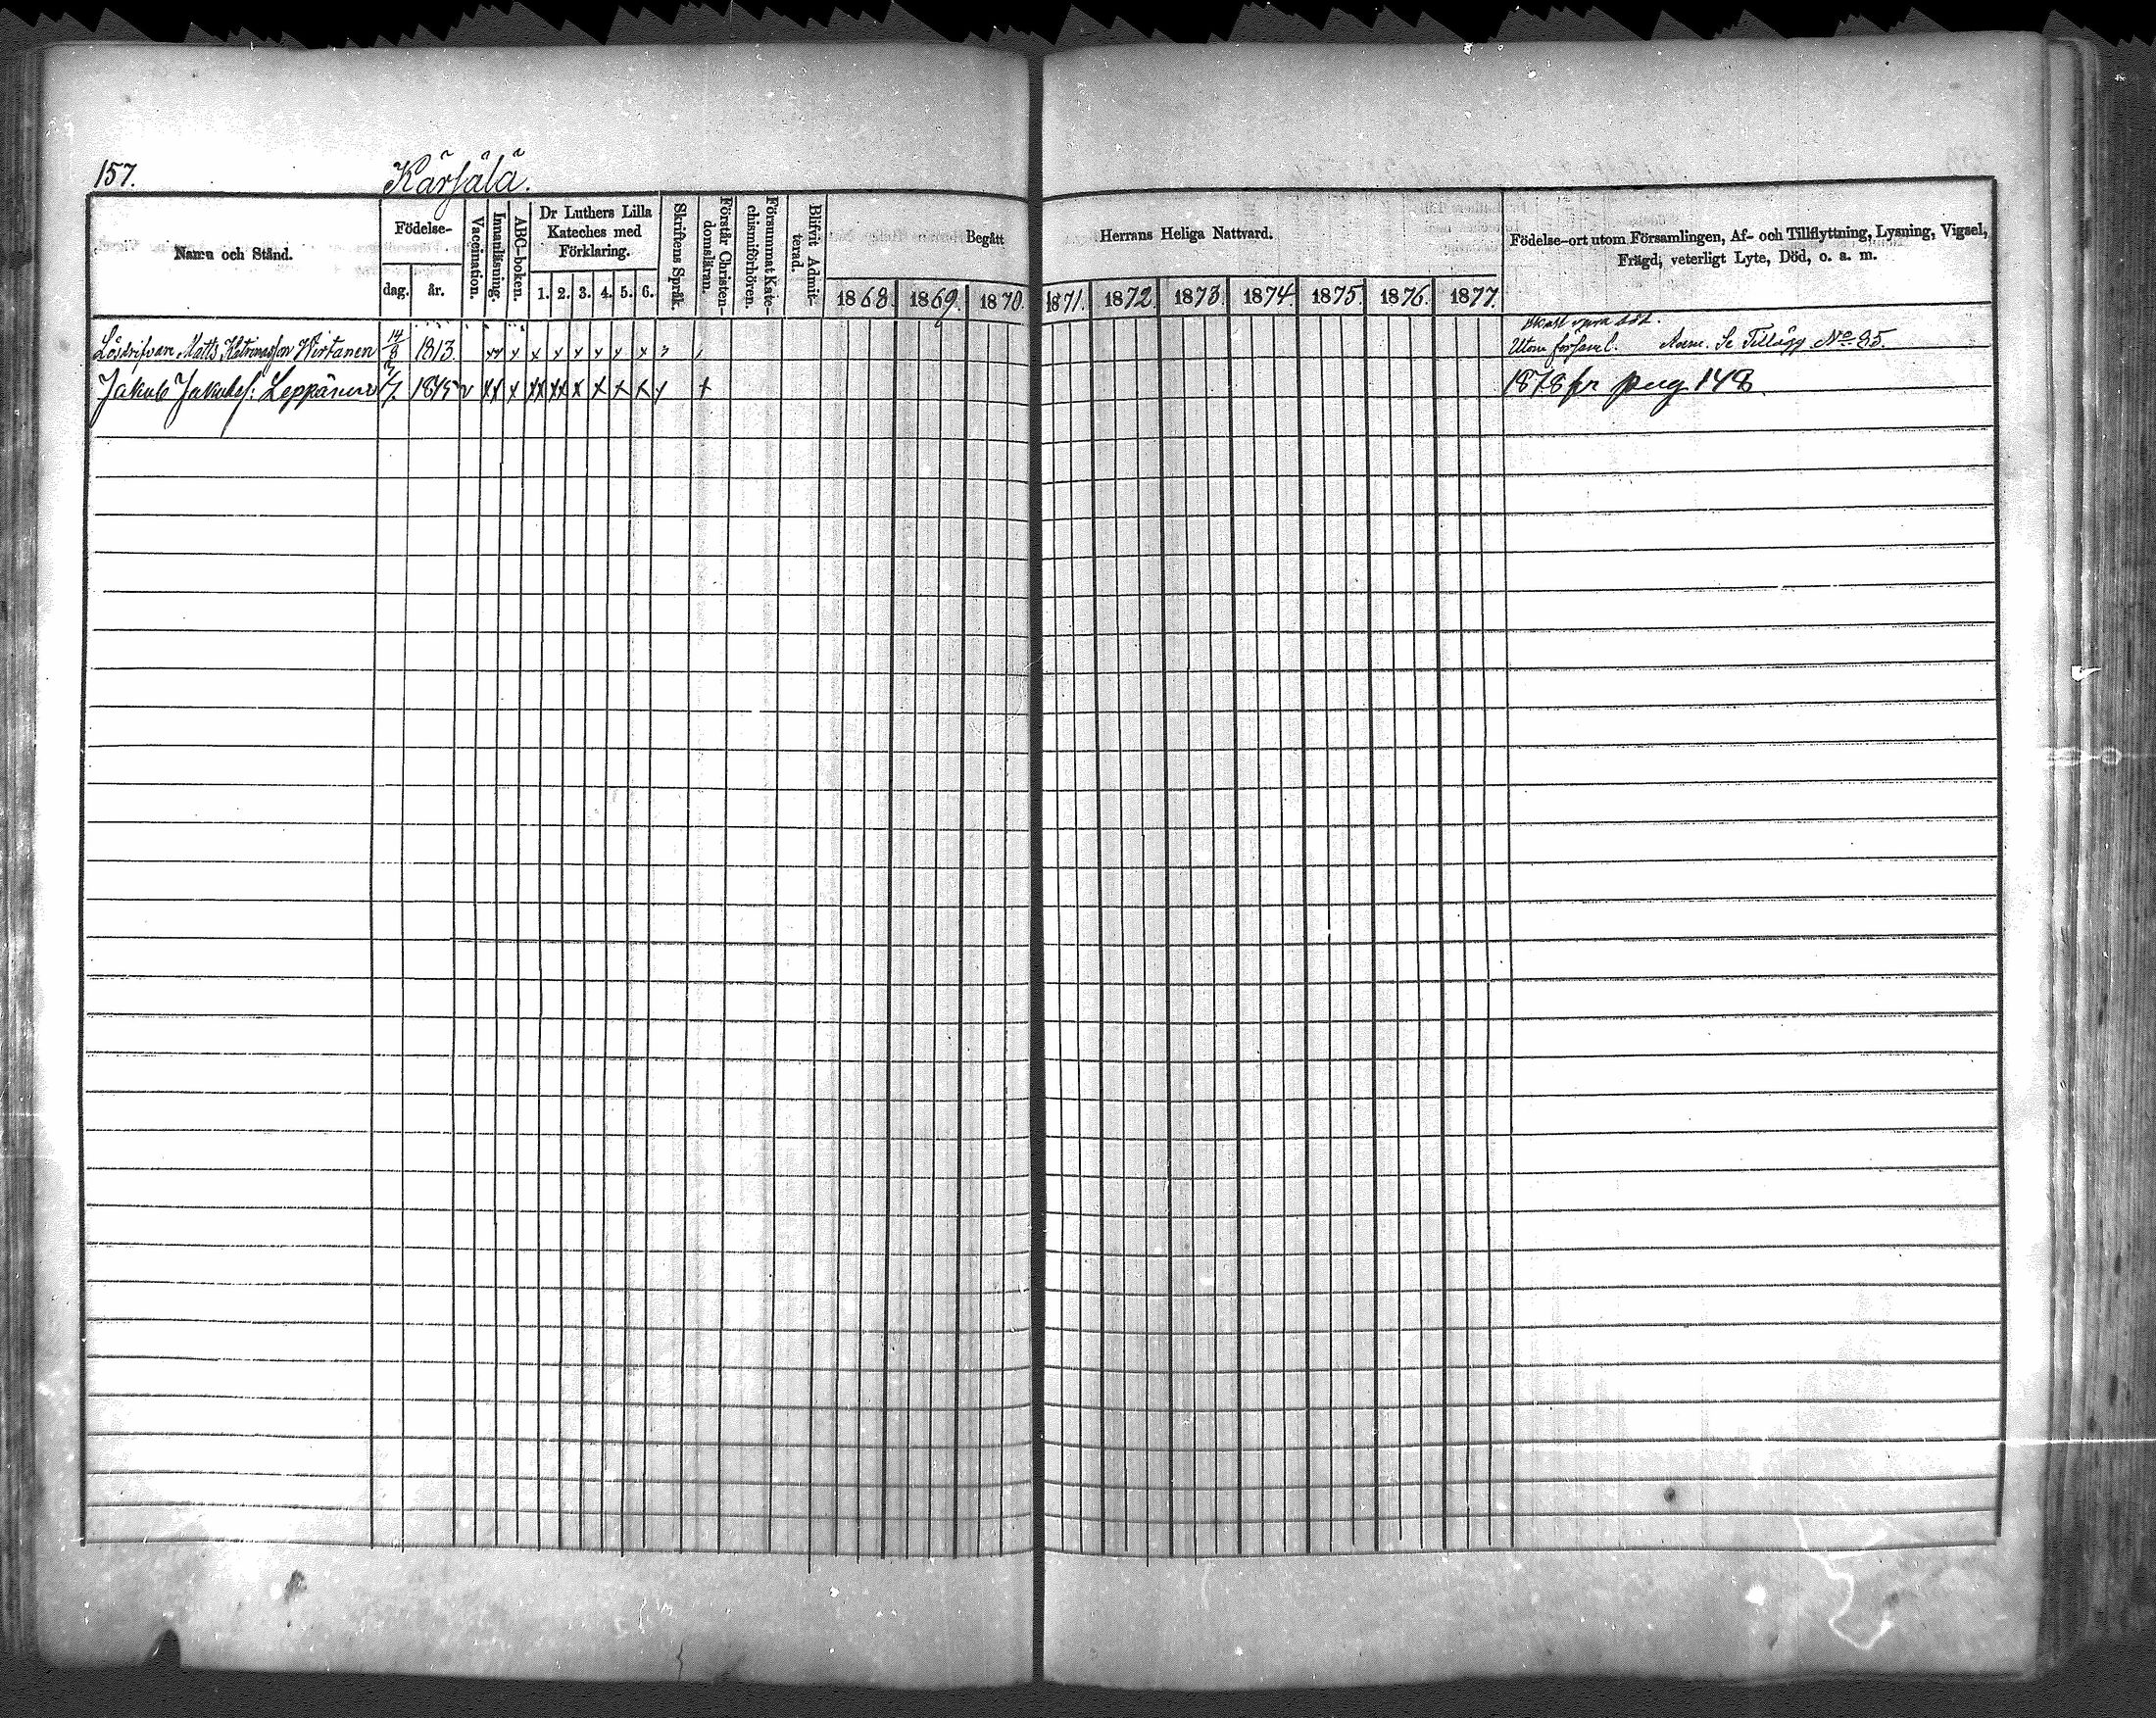 157.
Kärsälä.
Namn och Stånd.
Födelse-
dag. år.
Vaccination.
Innanläsning.
ABC-boken.
Dr Luthers Lilla
Kateches med
Förklaring.
1. 2. 3. 4. 5. 6.
Skriftens Språk.
Förstår Christen-
domsläran.
Försummat Kate-
chismiförhören.
Blifvit Admit-
terad.
Begått Herrans Heliga Nattvard.
1868. 1869. 1870. 1871. 1872. 1873. 1874. 1875. 1876. 1877.
Födelse-ort utom Församlingen, Af- och Tillflyttning, Lysning, Vigsel,
Frägd, veterligt Lyte, Död, o. a. m.
Lösdrifvaren Matts Katrinasson Wirtanen 14/8 1813. xx x x x x x x x
Utom församl. Anm. Se Tillägg No 35.
Jakob Jakobss: Leppänen 1845 v xx x xx xx x x x x x
1878 fr pag 148